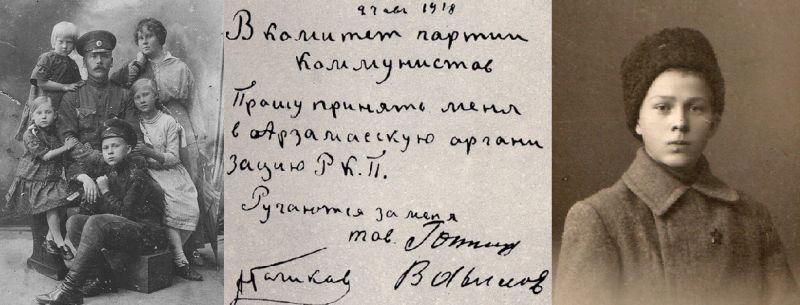 27 авг 1918
В комитет партии
коммунистов
Прошу принять меня
в Арзамасскую органи
зацию Р.К.П.
Ручаются за меня
тов. Гоппиус
Вавилов